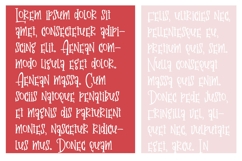 Lorem ipsum dolor sit
amet, consectetuer adipi-
scing elit. Aenean com-
modo ligula eget dolor.
Aenean massa. Cum
sociis natoque penatibus
et magnis dis parturient
montes, nascetur ridicu-
lus mus. Donec quam
felis, ultricies nec,
pellentesque eu,
pretium quis, sem.
Nulla consequat
massa quis enim.
Donec pede justo,
fringilla vel, ali-
quet nec, vulputate
eget, arcu. In